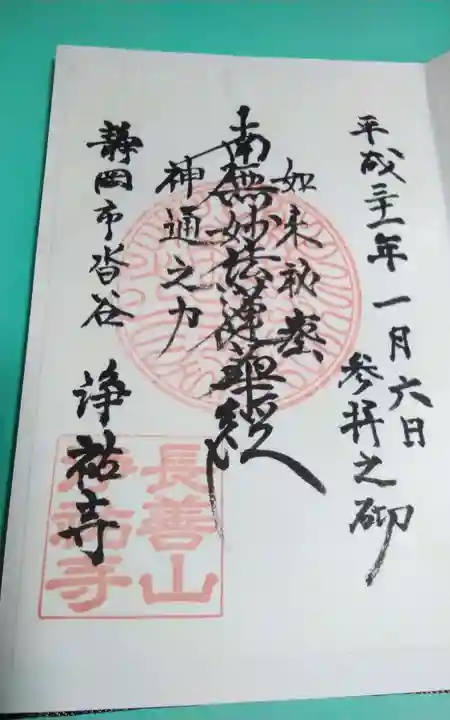 平成三十一年一月六日
参拝之砌
如来秘密
南無妙法蓮華経
神通之力
静岡市沓谷 浄祐寺
長善山
浄祐寺